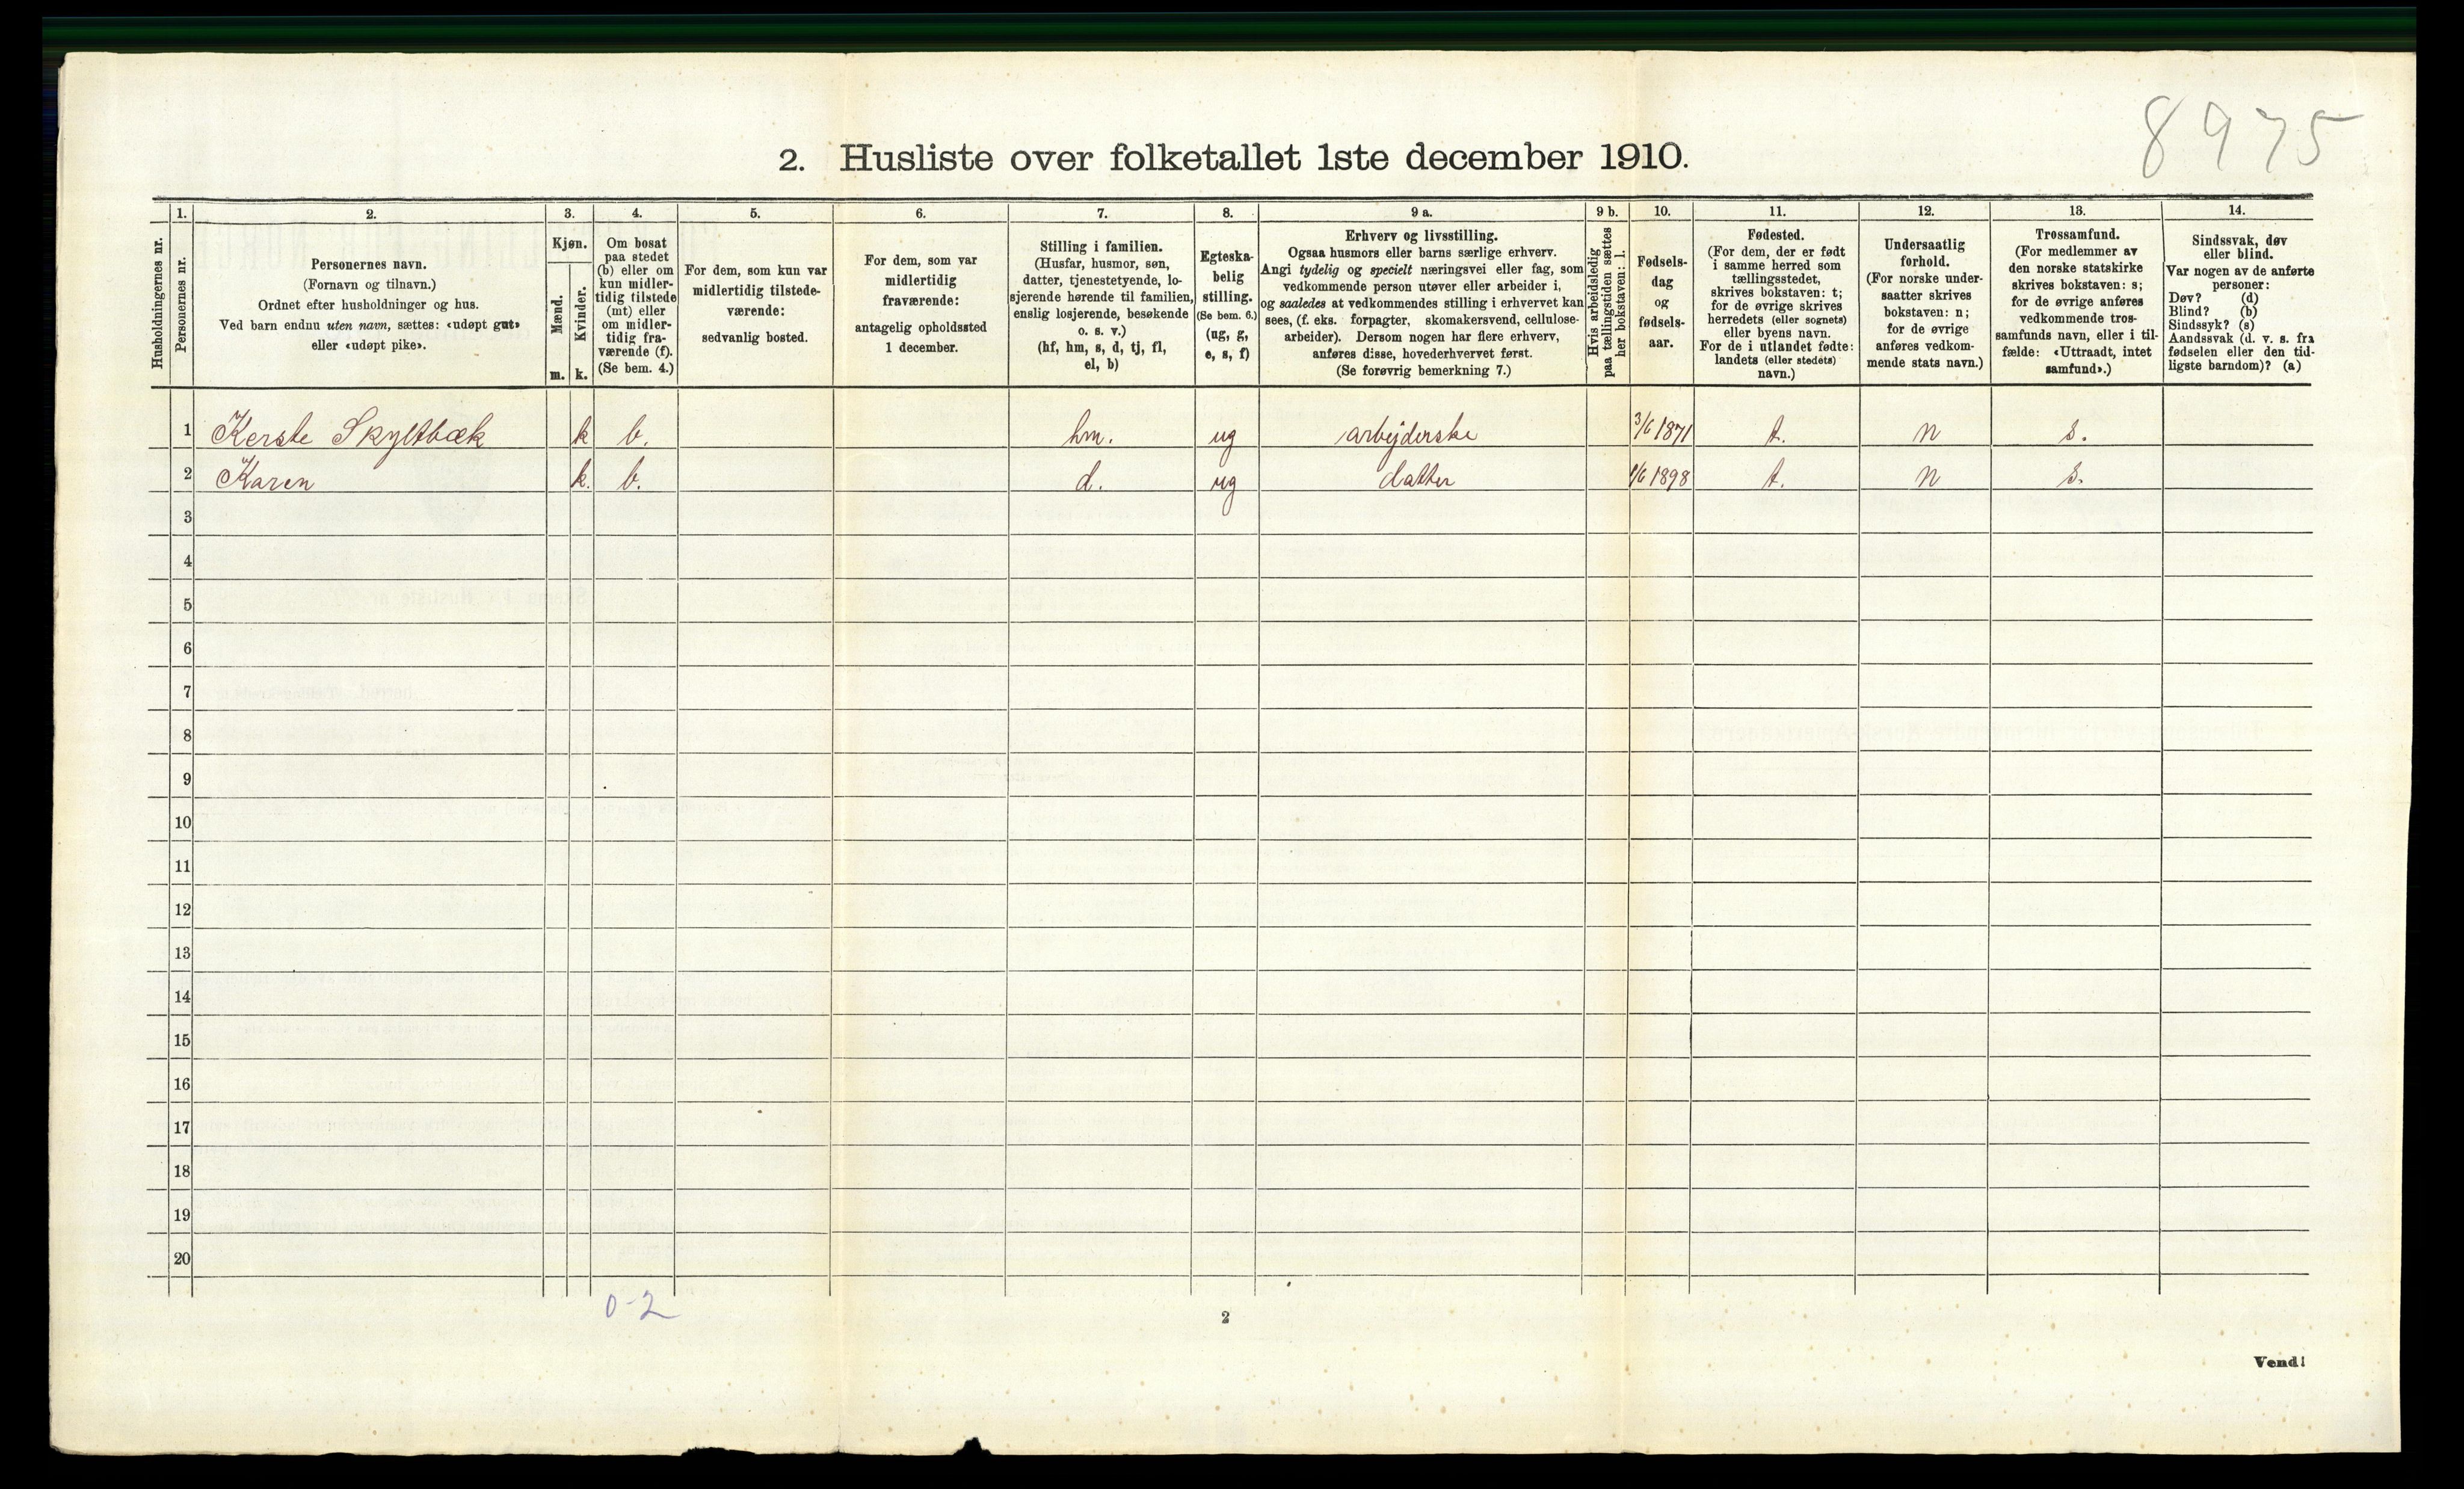 8975
2. Husliste over folketallet 1ste december 1910.
Husholdningernes nr.
1.
Personernes nr.
2.
Personernes navn.
(Fornavn og tilnavn.)
Ordnet efter husholdninger og hus.
Ved barn endnu uten navn, sættes: «udøpt gut»
eller «udøpt pike».
3.
Kjøn.
Mænd.
m.
Kvinder.
k.
4.
Om bosat
paa stedet
(b) eller om
kun midler-
tidig tilstede
(mt) eller
om midler-
tidig fra-
værende (f).
(Se bem. 4.)
5.
For dem, som kun var
midlertidig tilstede-
værende:
sedvanlig bosted.
6.
For dem, som var
midlertidig
fraværende:
antagelig opholdssted
1 december.
7.
Stilling i familien.
(Husfar, husmor, søn,
datter, tjenestetyende, lo-
sjerende hørende til familien,
enslig losjerende, besøkende
o. s. v.)
(hf, hm, s, d, tj, fl,
el, b)
8.
Egteska-
belig
stilling.
(Se bem. 6.)
(ug, g,
e, s, f)
9 a.
Erhverv og livsstilling.
Ogsaa husmors eller barns særlige erhverv.
Angi tydelig og specielt næringsvei eller fag, som
vedkommende person utøver eller arbeider i,
og saaledes at vedkommendes stilling i erhvervet kan
sees, (f. eks. forpagter, skomakersvend, cellulose-
arbeider). Dersom nogen har flere erhverv,
anføres disse, hovederhvervet først.
(Se forøvrig bemerkning 7.)
9 b.
Hvis arbeidsledig
paa tællingstiden sættes
her bokstaven: l.
10.
Fødsels-
dag
og
fødsels-
aar.
11.
Fødested.
(For dem, der er født
i samme herred som
tællingsstedet,
skrives bokstaven: t;
for de øvrige skrives
herredets (eller sognets)
eller byens navn.
For de i utlandet fødte:
landets (eller stedets)
navn.)
12.
Undersaatlig
forhold.
(For norske under-
saatter skrives
bokstaven: n;
for de øvrige
anføres vedkom-
mende stats navn.)
13.
Trossamfund.
(For medlemmer av
den norske statskirke
skrives bokstaven: s;
for de øvrige anføres
vedkommende tros-
samfunds navn, eller i til-
fælde: «Uttraadt, intet
samfund».)
14.
Sindssvak, døv
eller blind.
Var nogen av de anførte
personer:
Døv? (d)
Blind? (b)
Sindssyk? (s)
Aandssvak (d. v. s. fra
fødselen eller den tid-
ligste barndom)? (a)
1 Kerste Skyltbæk k b. hm. ug arbejderske 3/6 1871 t. n s.
2 Karen k. b. d. ug datter 1/6 1898 t. n s.
3
4
5
6
7
8
9
10
11
12
13
14
15
16
17
18
19
20
0-2
2
Vend!